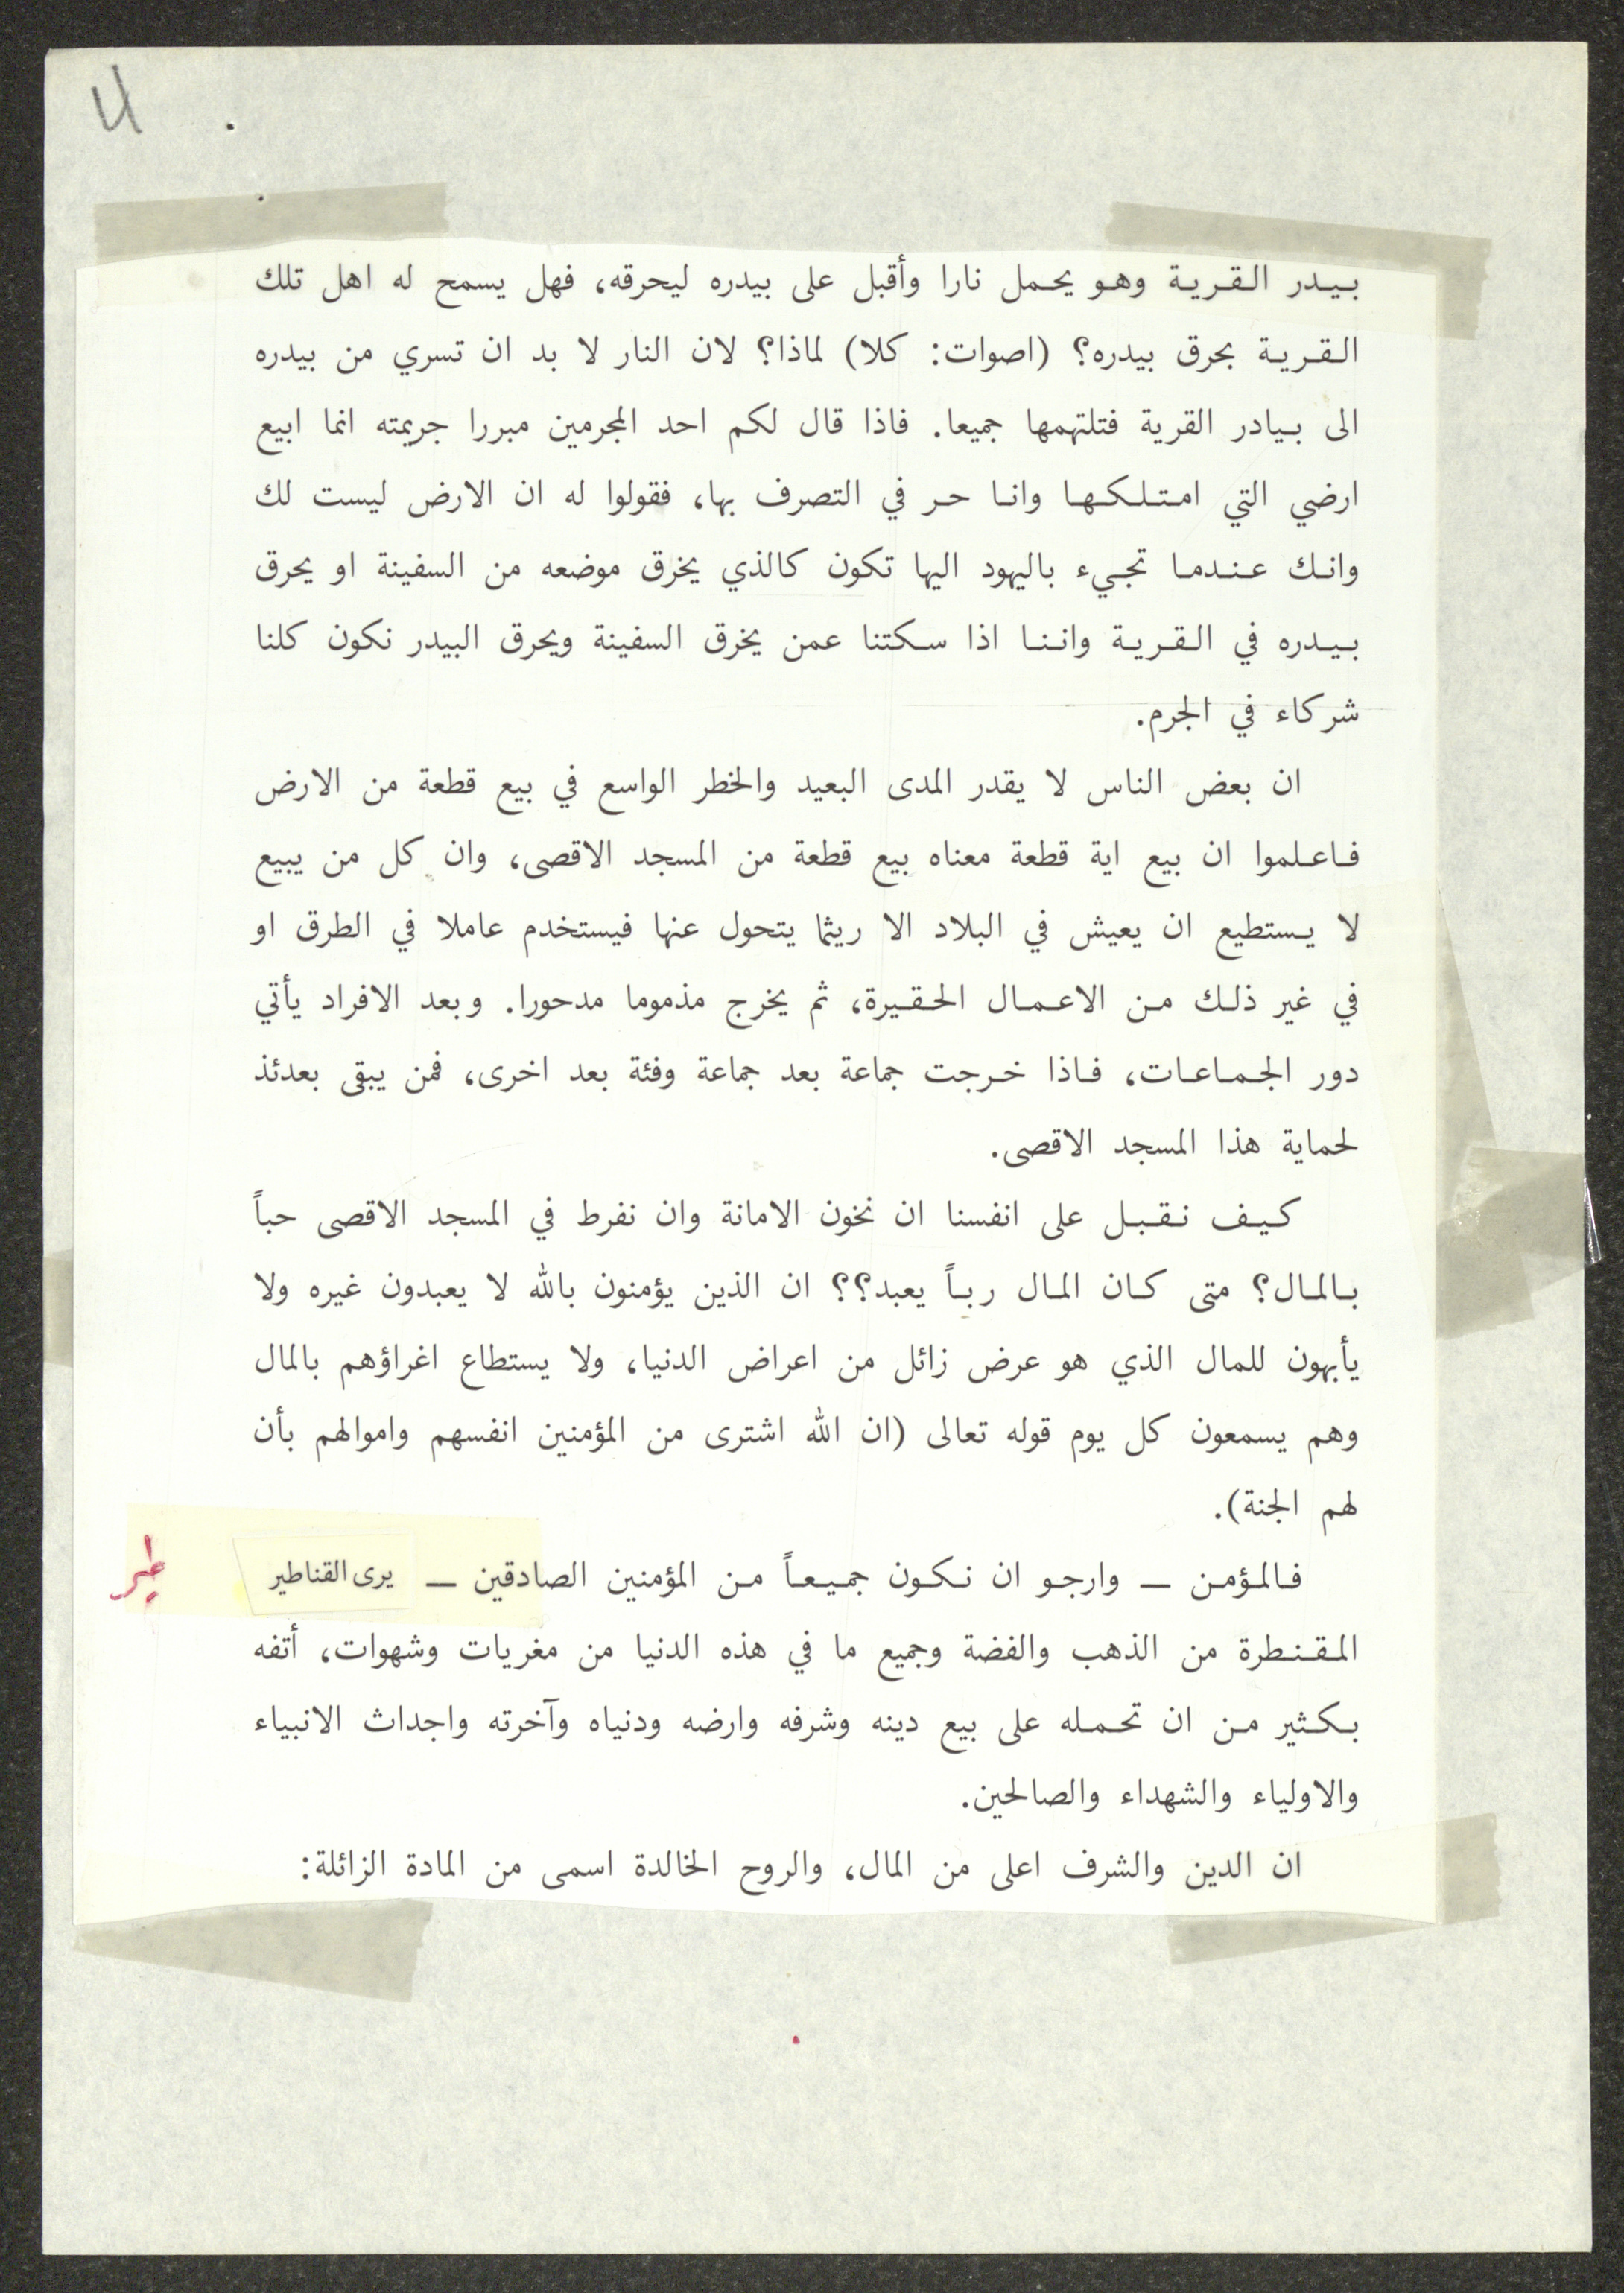 4
بيدر القرية وهو يحمل نارا وأقبل على بيدره ليحرقه، فهل يسمح له اهل تلك
القرية بحرق بيدره؟ (اصوات: كلا) لماذا؟ لان النار لا بد ان تسري من بيدره
الى بيادر القرية فتلتهمها جميعا. فاذا قال لكم احد المجرمين مبررا جريمته انما ابيع
ارضي التي امتلكها وانا حر في التصرف بها، فقولوا له ان الارض ليست لك
وانك عندما تجيء باليهود اليها تكون كالذي يخرق موضعه من السفينة او يحرق
بيدره في القرية واننا اذا سكتنا عمن يخرق السفينة ويحرق البيدر نكون كلنا
شركاء في الجرم.
ان بعض الناس لا يقدر المدى البعيد والخطر الواسع في بيع قطعة من الارض
فاعلموا ان بيع اية قطعة معناه بيع قطعة من المسجد الاقصى، وان كل من يبيع
لا يستطيع ان يعيش في البلاد الا ريثما يتحول عنها فيستخدم عاملا في الطرق او
في غير ذلك من الاعمال الحقيرة، ثم يخرج مذموما مدحورا. وبعد الافراد يأتي
دور الجماعات، فاذا خرجت جماعة بعد جماعة وفئة بعد اخرى، فمن يبقى بعدئذ
لحماية هذا المسجد الاقصى.
كيف نقبل على انفسنا ان نخون الامانة وان نفرط في المسجد الاقصى حباً
بالمال؟ متى كان المال رباً يعبد؟؟ ان الذين يؤمنون بالله لا يعبدون غيره ولا
يأبهون للمال الذي هو عرض زائل من اعراض الدنيا، ولا يستطاع اغراؤهم بالمال
وهم يسمعون كل يوم قوله تعالى (ان الله اشترى من المؤمنين انفسهم واموالهم بأن
لهم الجنة).
فالمؤمن — وارجو ان نكون جميعاً من المؤمنين الصادقين — يرى القناطير
طير
المقنطرة من الذهب والفضة وجميع ما في هذه الدنيا من مغريات وشهوات، أتفه
بكثير من ان تحمله على بيع دينه وشرفه وارضه ودنياه وآخرته واجداث الانبياء
والاولياء والشهداء والصالحين.
ان الدين والشرف اعلى من المال، والروح الخالدة اسمى من المادة الزائلة: